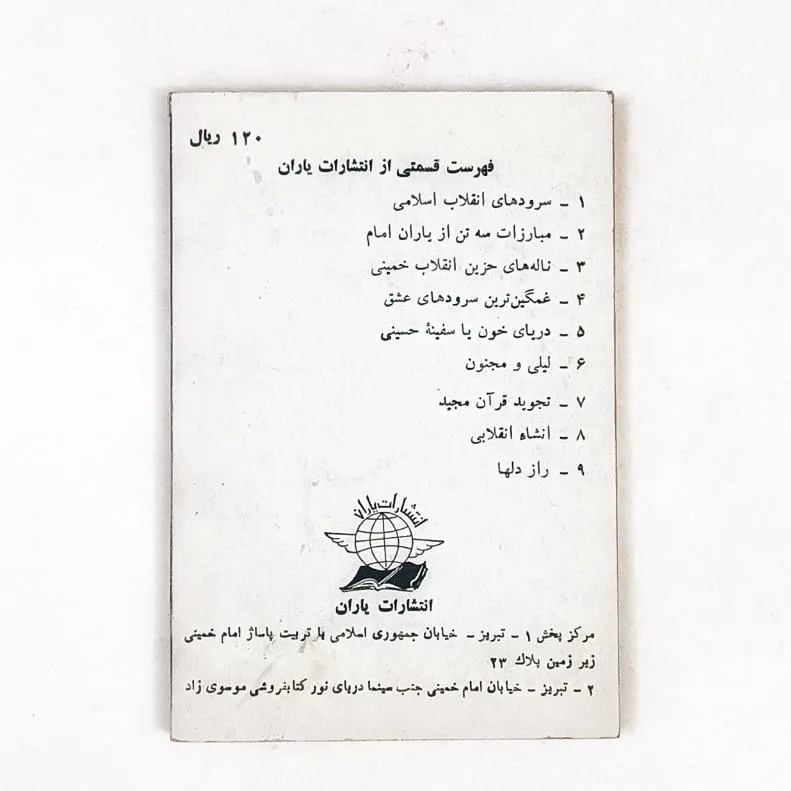 ۱۲۰ ریال
فهرست قسمتی از انتشارات یاران
۱ - سرودهای انقلاب اسلامی
۲ - مبارزات سه تن از یاران امام
۳ - ناله‌های حزین انقلاب خمینی
۴ - غمگین‌ترین سرودهای عشق
۵ - دریای خون یا سفینهٔ حسینی
۶ - لیلی و مجنون
۷ - تجوید قرآن مجید
۸ - انشاء انقلابی
۹ - راز دلها
انتشارات یاران
انتشارات یاران
مرکز پخش ۱ - تبریز - خیابان جمهوری اسلامی یا تربیت پاساژ امام خمینی
زیر زمین پلاك ۲۳
۲ - تبریز - خیابان امام خمینی جنب سینما دریای نور کتابفروشی موسوی زاد